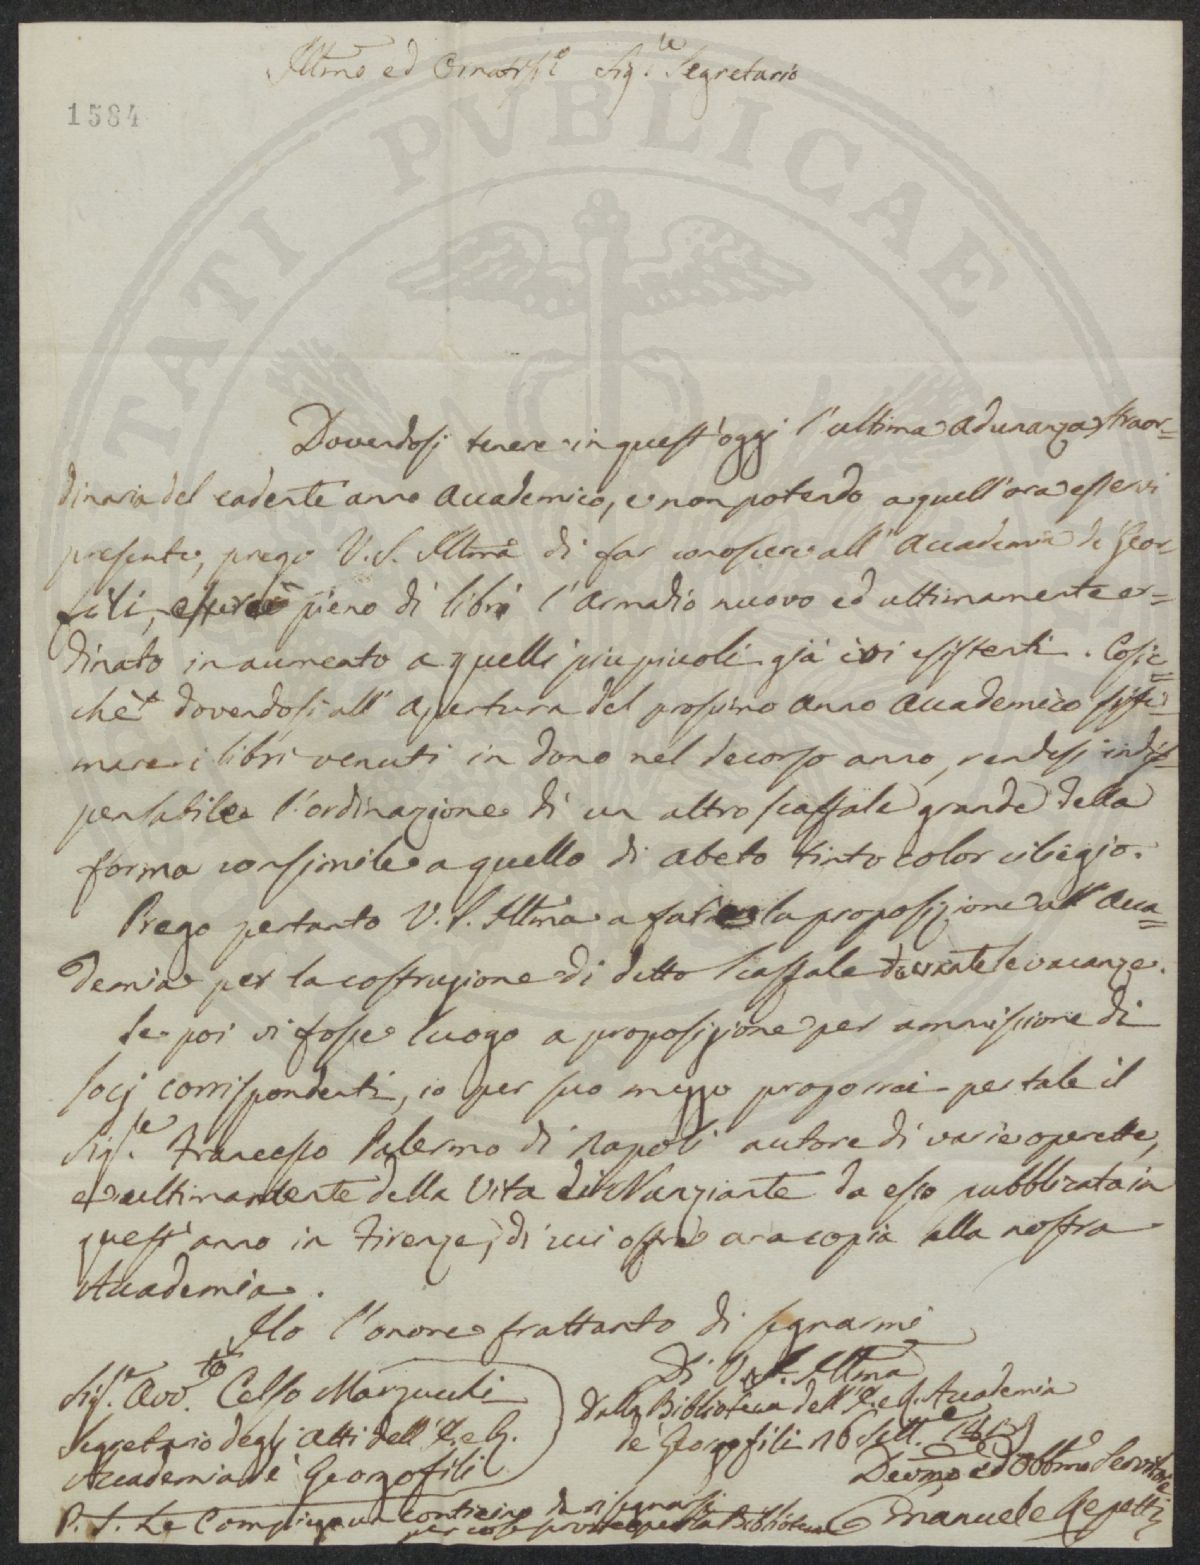 Illmo ed Ornatiss.e Sig.re Segretario
1584
PVBLICAE
TATI
Dovendosi tenere in quest'oggi l'ultima adunanza straor=
dinaria del cadente anno Accademico, e non potendo a quell'ora esservi
presente, prego V.S. Illma di far conoscere all'Accademia de' Geor
fili, essere pieno di libri l'armadio nuovo ed ultimamente or=
dinato in aumento a quelli più piccoli già ivi esistenti. Cosic=
chè dovendosi all'apertura del prossimo anno Accademico siste=
mare i libri venuti in dono nel decorso anno, rendesi indis=
pensabile l'ordinazione di un altro scaffale grande della
forma consimile a quello di abeto tinto color ciliegio.
Prego pertanto V.S. Illma a far la proposizione all'Acca=
demia per la costruzione di detto scaffale durante le vacanze.
Se poi vi fosse luogo a proposizione per ammissione di
socj corrispondenti, io per suo mezzo proporrei per tale il
Sig.re Francesco Palermo di Napoli autore di varie operette,
e ultimamente della Vita di Nunziante da esso pubblicata in
quest'anno in Firenze, di cui offre una copia alla nostra
Accademia.
Ho l'onore frattanto di segnarmi
Di V.S. Illma
Sig.re Avv.to Celso Marzucchi
Segretario degli Atti dell'I. e R.
Accademia de' Georgofili
Dalla Biblioteca dell'I. e R. Accademia
de' Georgofili 16 Sett.e 1839
Devmo ed Obbmo Servitore
Emanuele Repetti
P.S. Le Compiego un contino da rassegnarsi
per cose per la Biblioteca